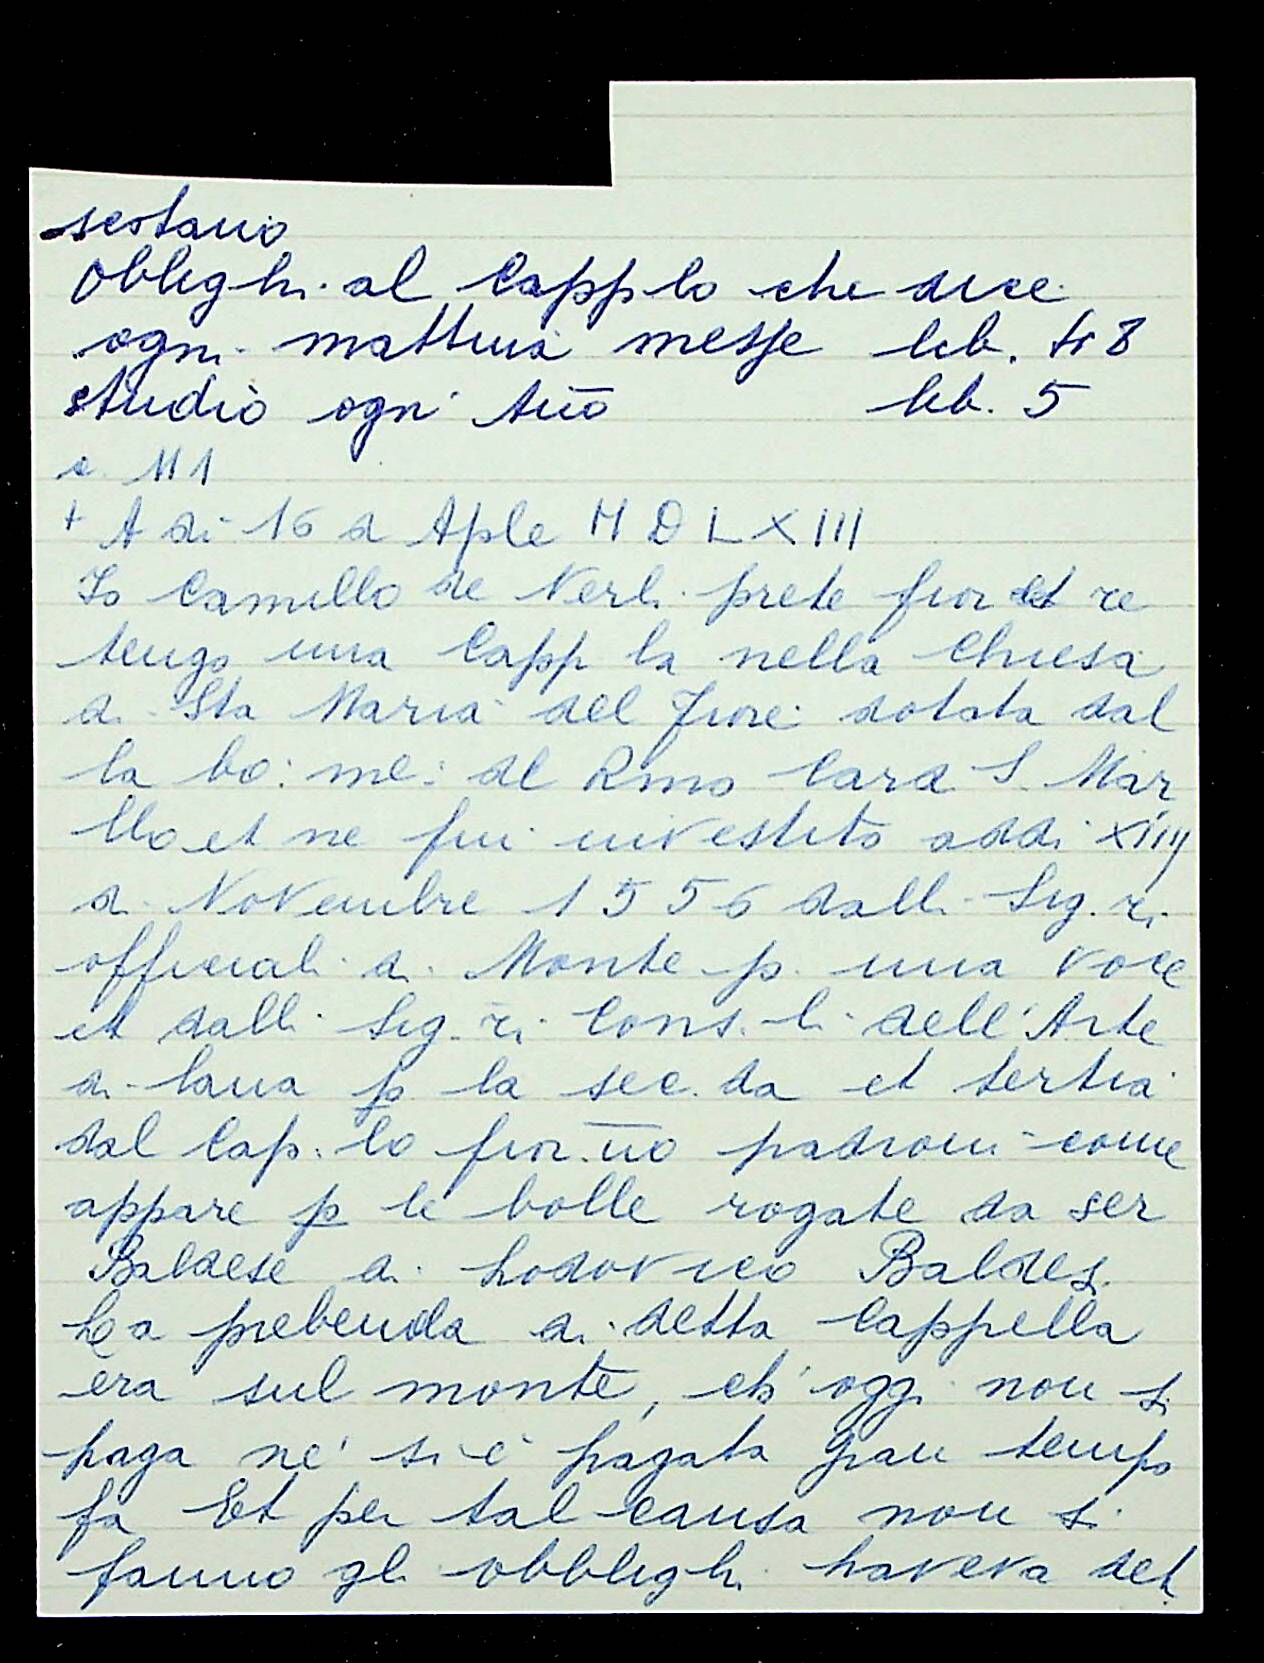 sestano
Oblighi al Capplo che dice
ogni mattina messe lib. 48
studiò ogni Año lib. 5
c. 111
+ A di 16 d Aple MDLXIII
Io Camillo de Nerli prete fior et re
tengo una Capp la nella Chiesa
di Sta Maria del fiore dotata dal
la bo: me: del Rmo Card. S. Mar
llo et ne fui investito addi xiiij
di Novembre 1556 dalli Sig. ri
officiali di Monte p. una voce
et dalli Sig. ri Cons. li dell'Arte
di lana p la sec. da et tertia
dal Cap. lo fior. no padroni come
appare p le bolle rogate da ser
Baldese di Lodovico Baldesi.
La prebenda di detta Cappella
era sul monte, ch' oggi non si
paga nè si è pagata gran tempo
fa Et per tal causa non si
fanno gli obblighi haveva det